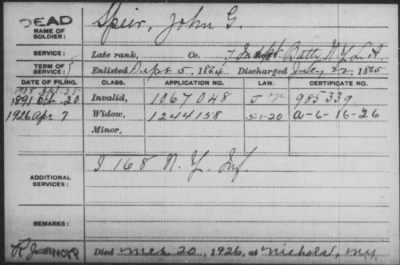 DEAD
NAME OF SOLDIER: Speir, John G.
SERVICE: Late rank, Co. 7, Batty N.Y. L.A.
TERM OF SERVICE: Enlisted Sept 5, 1864 Discharged July 22, 1865
DATE OF FILING. CLASS. APPLICATION NO. CERTIFICATE NO.
1891 Oct. 20 Invalid, 1067048 985339
1926 Apr. 7 Widow, 1244158 5-1-20 a-6-16-26
Minor,
ADDITIONAL SERVICES: I 168 N.Y. Inf.
REMARKS:
Died 20, 1926, at Nichols, N.Y.